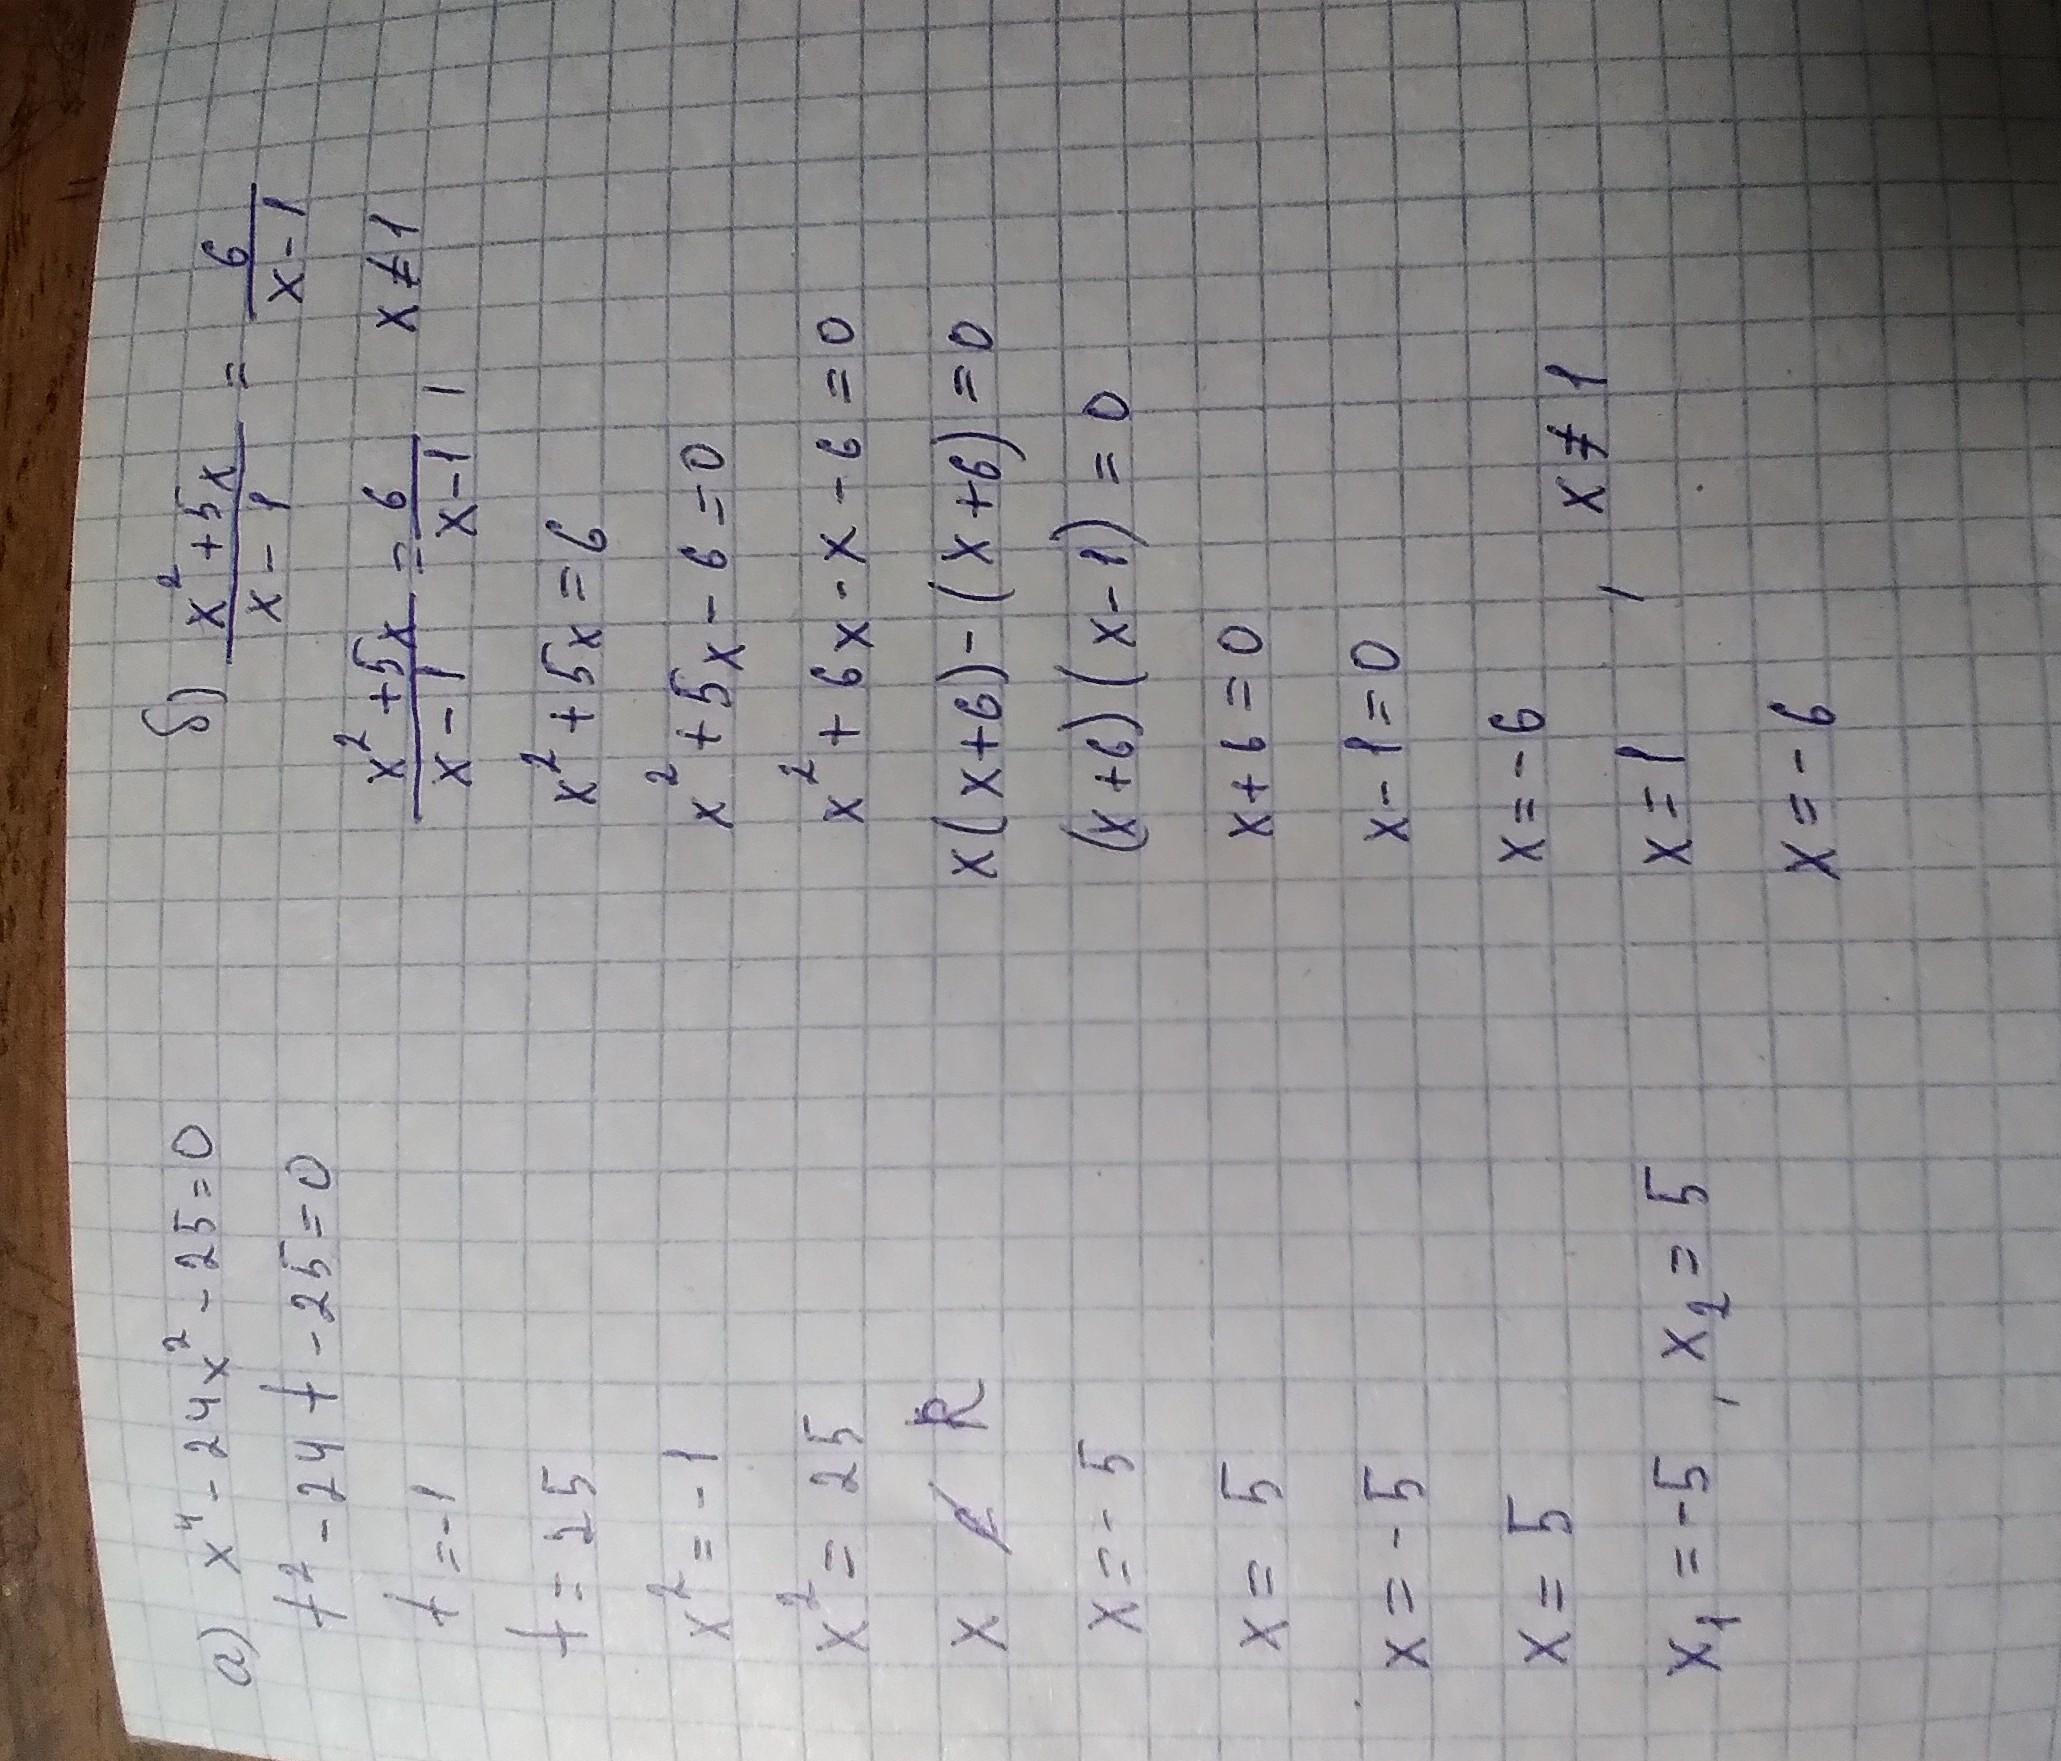 а) x⁴ - 24x² - 25 = 0
t² - 24t - 25 = 0
t = -1
t = 25
x² = -1
x² = 25
x ∉ R
x = -5
x = 5
x = -5
x = 5
x₁ = -5, x₂ = 5
б) (x² + 5x)/(x - 1) = 6/(x - 1)
(x² + 5x)/(x - 1) = 6/(x - 1), x ≠ 1
x² + 5x = 6
x² + 5x - 6 = 0
x² + 6x - x - 6 = 0
x(x + 6) - (x + 6) = 0
(x + 6)(x - 1) = 0
x + 6 = 0
x - 1 = 0
x = -6
x = 1 , x ≠ 1
x = -6